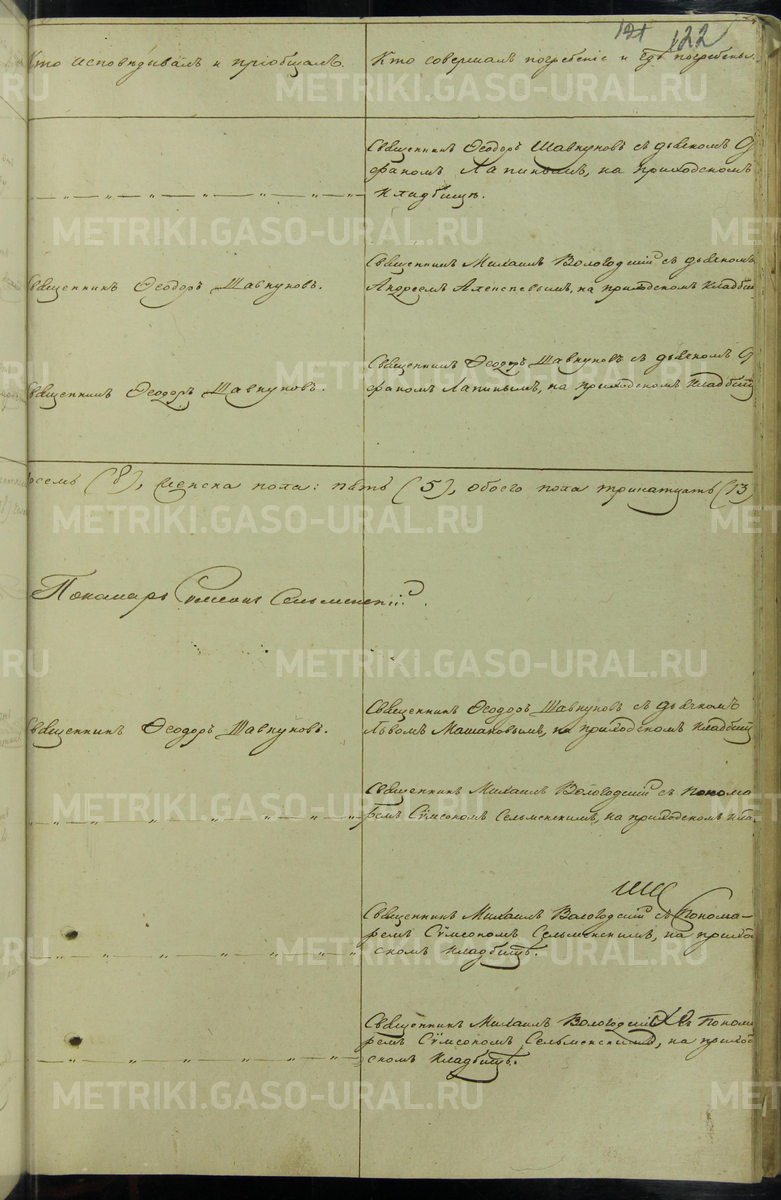 121 122
Кто исповѣдывалъ и пріобщалъ.
Кто совершалъ погребеніе и гдѣ погребены.
Священникъ Ѳеодоръ Шавкуновъ съ дьячкомъ
фаномъ Лапинымъ, на приходскомъ
кладбищѣ.
Священникъ Ѳеодоръ Шавкуновъ.
Священникъ Михаилъ Вологодскій съ дьячкомъ
Андреемъ Алексѣевымъ, на приходскомъ кладби
Священникъ Ѳеодоръ Шавкуновъ.
Священникъ Ѳеодоръ Шавкуновъ съ дьячкомъ
фаномъ Лапинымъ, на приходскомъ кладбищ
осемь (8), женска пола: пять (5), обоего пола тринатцать (13)
Пономарь Сѵмеонъ Сельменскій.
Священникъ Ѳеодоръ Шавкуновъ.
Священникъ Ѳеодоръ Шавкуновъ съ дьячкомъ
Львомъ Машановымъ, на приходскомъ кладбищ
Священникъ Михаилъ Вологодскій съ понома
ремъ Сѵмеономъ Сельменскимъ, на приходскомъ кла
Священникъ Михаилъ Вологодскій съ Понома-
ремъ Сѵмеономъ Сельменскимъ, на прихо
скомъ кладбищѣ.
Священникъ Михаилъ Вологодскій съ Поном
ремъ Сѵмеономъ Сельменскимъ, на приход
скомъ кладбищѣ.
METRIKI.GASO-URAL.RU